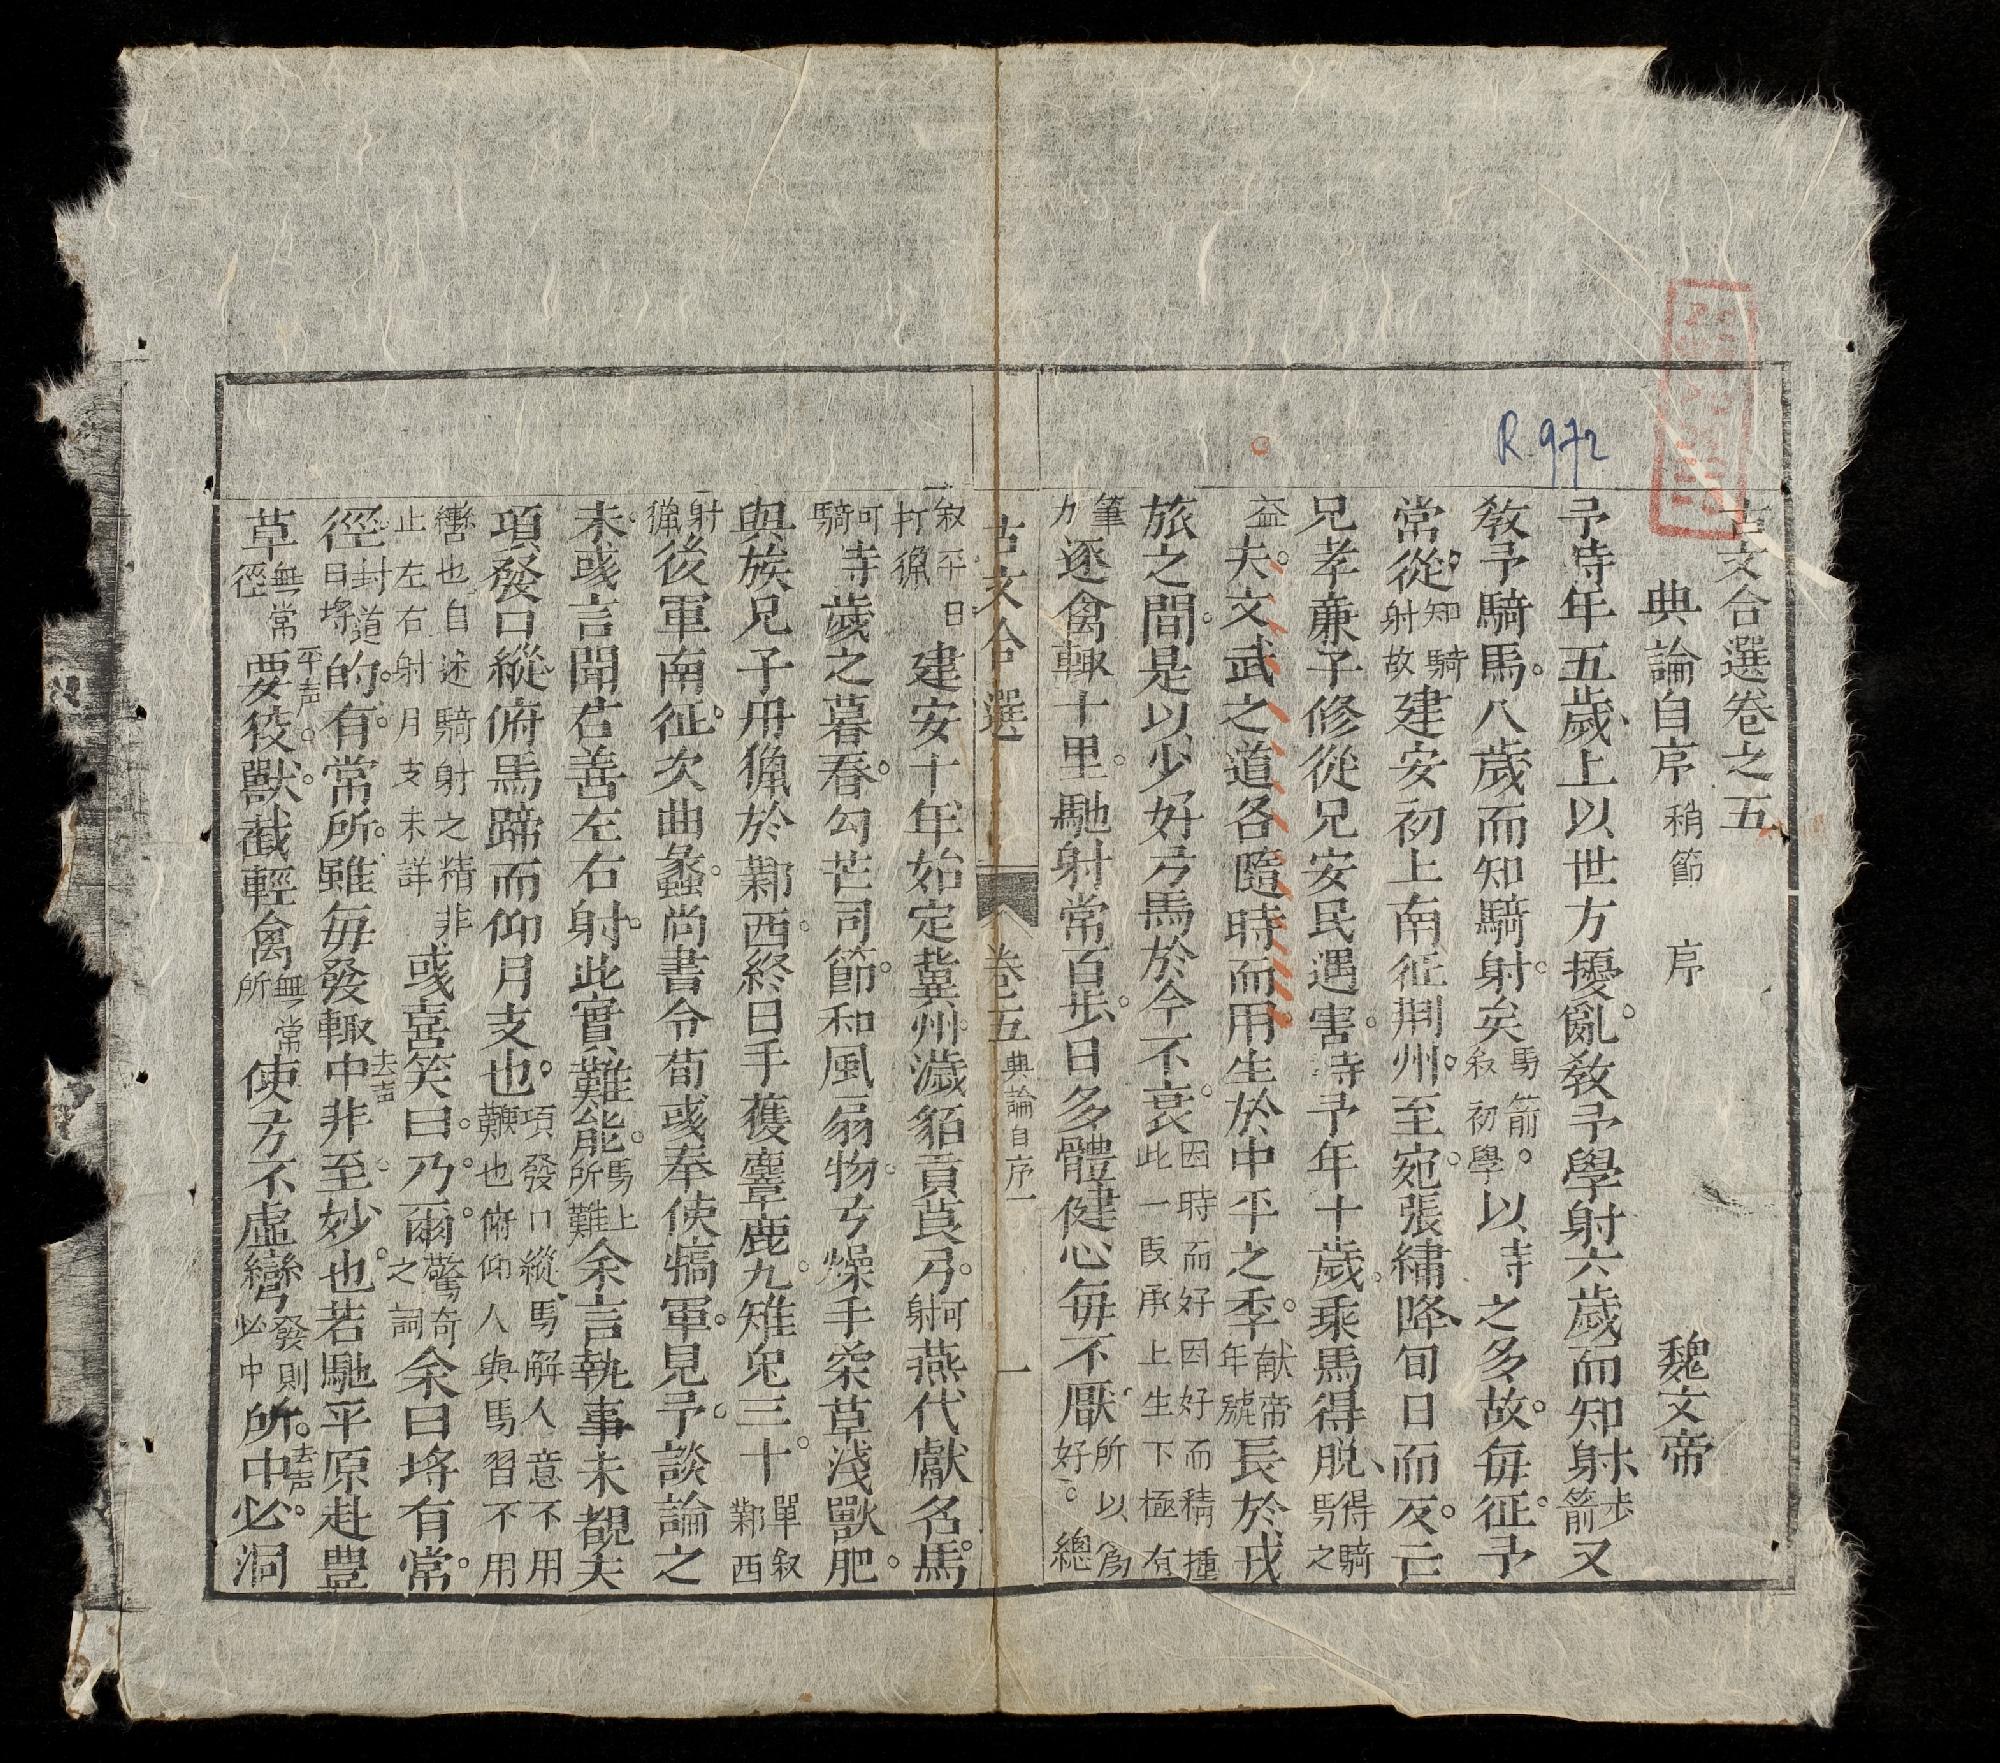 R.972
古文合選卷之五
典論自序 稍節 序 魏文帝
予時年五歲上以世方擾亂教予學射六歲而知射步箭又
教予騎馬八歲而知騎射矣馬箭叙初學以時之多故每征予
常從知騎射故建安初上南征荆州至宛張繡降旬日而反亡
兄孝廉子修從兄安民遇害時予年十歲乘馬得脱得騎馬之
益夫文武之道各隨時而用生於中平之季献帝年號長於戎
旅之間是以少好弓馬於今不衰因時而好因好而精捶此一段承上生下極有
筆力逐禽輙十里馳射常百步日多體健心每不厭所以爲好總
叙平日打獵建安十年始定冀州濊貊貢茛弓可射燕代獻名馬
可騎時歲之暮春勾芒司節和風扇物弓燥手柔草淺獸肥
與族兄子丹獵於鄴西終日手獲麞鹿九雉兔三十單叙鄴西
射獵後軍南征次曲蠡尚書令荀彧奉使犒軍見予談論之
末彧言聞君善左右射此實難能馬上所難余言執事未覩夫
項發口縱俯馬蹄而仰月支也項發口縱馬解人意不用鞭也俯仰人與馬習不用
轡也自述騎射之精非止左右射月支未詳彧喜笑曰乃爾驚奇之詞余曰埓有常
徑封道曰埓的有常所雖每發輙中去声非至妙也若馳平原赴豊
草無常徑要平声狡獸截輕禽無常所使方不虛彎發則必中所中去声必洞
古文合選 卷五 典論自序一 一